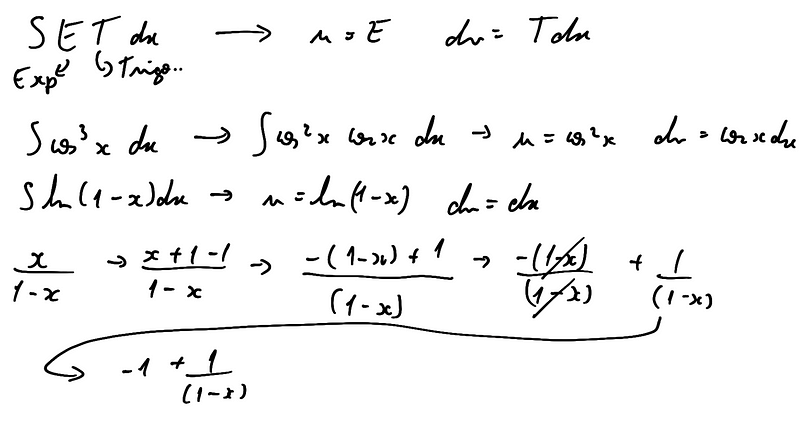 ∫ E T dx → u = E dv = T dx
Exp Trigo..
∫ cos³ x dx → ∫ cos² x cos x dx → u = cos² x dv = cos x dx
∫ ln(1-x) dx → u = ln(1-x) dv = dx
x/(1-x) → (x+1-1)/(1-x) → (-(1-x)+1)/((1-x)) → (-(1-x))/((1-x)) + 1/((1-x))
→ -1 + 1/((1-x))